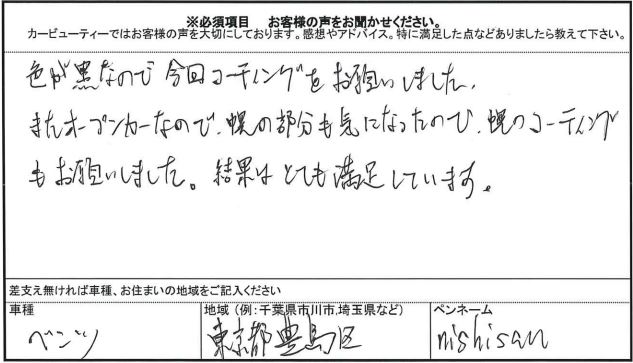 ※必須項目　お客様の声をお聞かせください。
カービューティーではお客様の声を大切にしております。感想やアドバイス。特に満足した点などありましたら教えて下さい。
色が黒なので今回コーティングをお願いしました。
またオープンカーなので、幌の部分も気になったので、幌のコーティング
もお願いしました。結果はとても満足しています。
差支え無ければ車種、お住まいの地域をご記入ください
車種　地域（例:千葉県市川市,埼玉県など）　ペンネーム
ベンツ　東京都豊島区　nishisan